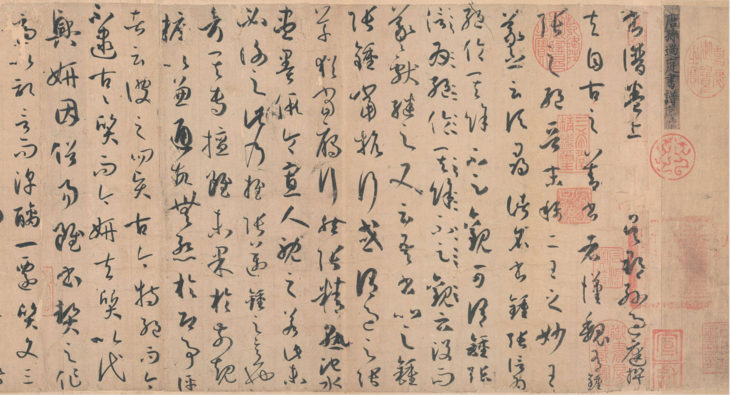 唐孫過庭書譜
書譜卷上 吳郡孫過庭撰
夫自古之善書者漢魏有鍾
張之絕晉末稱二王之妙王
羲之云頃尋諸名書鍾張信為
絕倫其餘不足觀可謂鍾張
信為絕倫其餘不足觀云沒而
羲獻繼之又云吾書比之鍾
張鍾當抗行或謂過之張
草猶當鴈行然張精熟池水
盡墨假令寡人耽之若此未
必謝之此乃推張邁鍾之意也
考其專擅雖未果於前規
摭以兼通故無慚於即事評
者云彼之四賢古今特絕而今
不逮古古質而今妍夫質以代
興妍因俗易雖書契之作
適以記言而淳醨一遷質文三